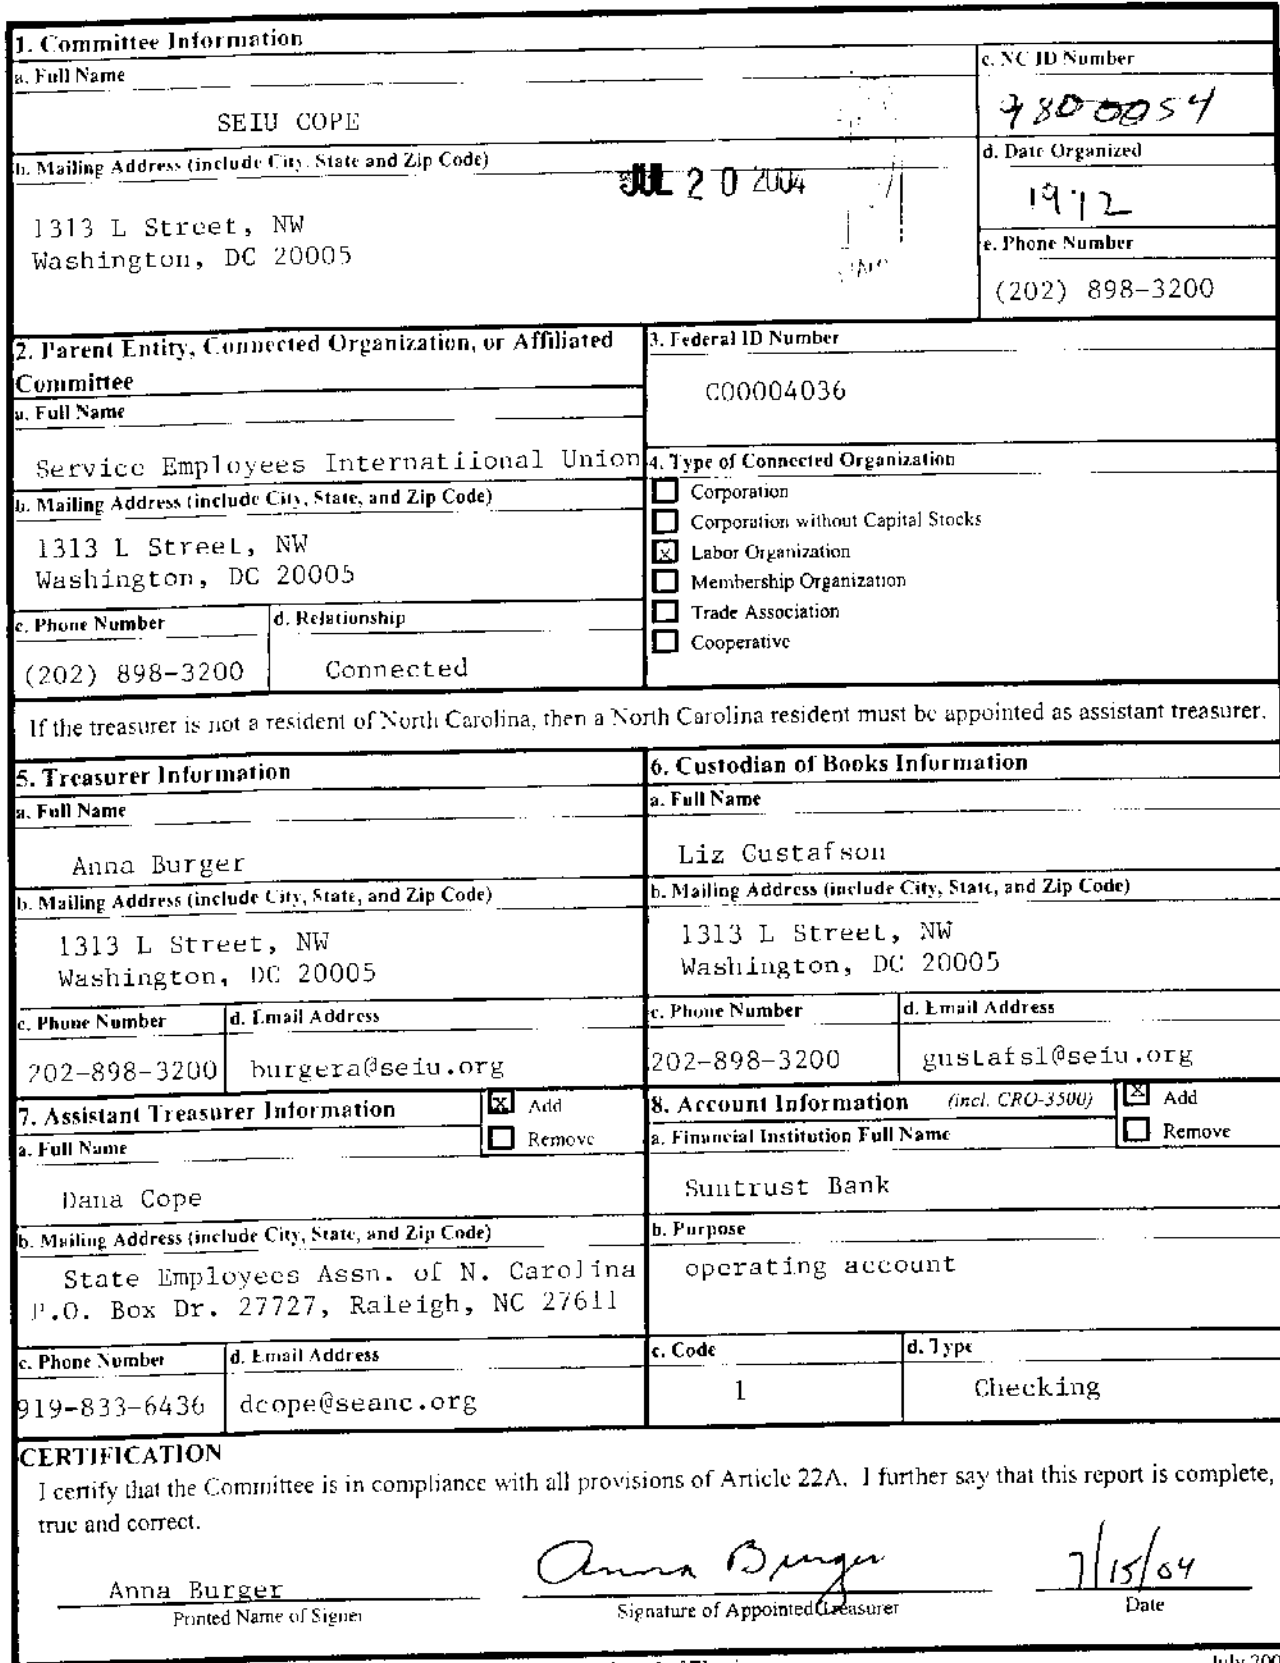 1. Committee Information
a. Full Name
SEIU COPE
c. NC ID Number
9800054
b. Mailing Address (include City, State and Zip Code)
JUL 20 2004
1313 L Street, NW
Washington, DC 20005
d. Date Organized
1972
e. Phone Number
(202) 898-3200
2. Parent Entity, Connected Organization, or Affiliated
Committee
a. Full Name
Service Employees Internatiional Union
b. Mailing Address (include City, State, and Zip Code)
1313 L Street, NW
Washington, DC 20005
c. Phone Number
(202) 898-3200
d. Relationship
Connected
3. Federal ID Number
C00004036
4. Type of Connected Organization
Corporation
Corporation without Capital Stocks
x Labor Organization
Membership Organization
Trade Association
Cooperative
If the treasurer is not a resident of North Carolina, then a North Carolina resident must be appointed as assistant treasurer.
5. Treasurer Information
a. Full Name
Anna Burger
b. Mailing Address (include City, State, and Zip Code)
1313 L Street, NW
Washington, DC 20005
c. Phone Number
202-898-3200
d. Email Address
burgera@seiu.org
6. Custodian of Books Information
a. Full Name
Liz Gustafson
b. Mailing Address (include City, State, and Zip Code)
1313 L Street, NW
Washington, DC 20005
c. Phone Number
202-898-3200
d. Email Address
gustafsl@seiu.org
7. Assistant Treasurer Information
x Add
Remove
a. Full Name
Dana Cope
b. Mailing Address (include City, State, and Zip Code)
State Employees Assn. of N. Carolina
P.O. Box Dr. 27727, Raleigh, NC 27611
c. Phone Number
919-833-6436
d. Email Address
dcope@seanc.org
8. Account Information (incl. CRO-3500)
x Add
Remove
a. Financial Institution Full Name
Suntrust Bank
b. Purpose
operating account
c. Code
1
d. Type
Checking
CERTIFICATION
I certify that the Committee is in compliance with all provisions of Article 22A. I further say that this report is complete,
true and correct.
Anna Burger
Printed Name of Signer
Anna Burger
Signature of Appointed Treasurer
7/15/04
Date
July 200